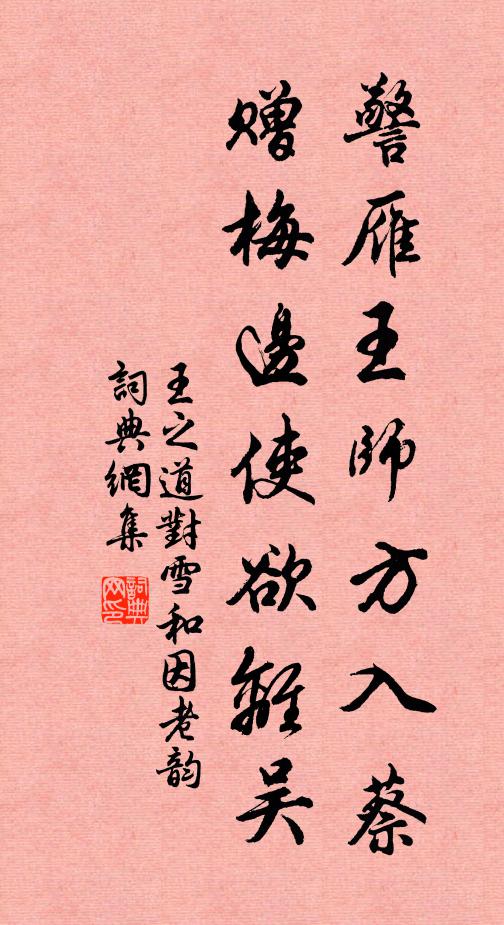 警雁王師方入蔡
贈梅邊使欲離吴
王之道對雪和因老韵
詞典網集
詞典网印